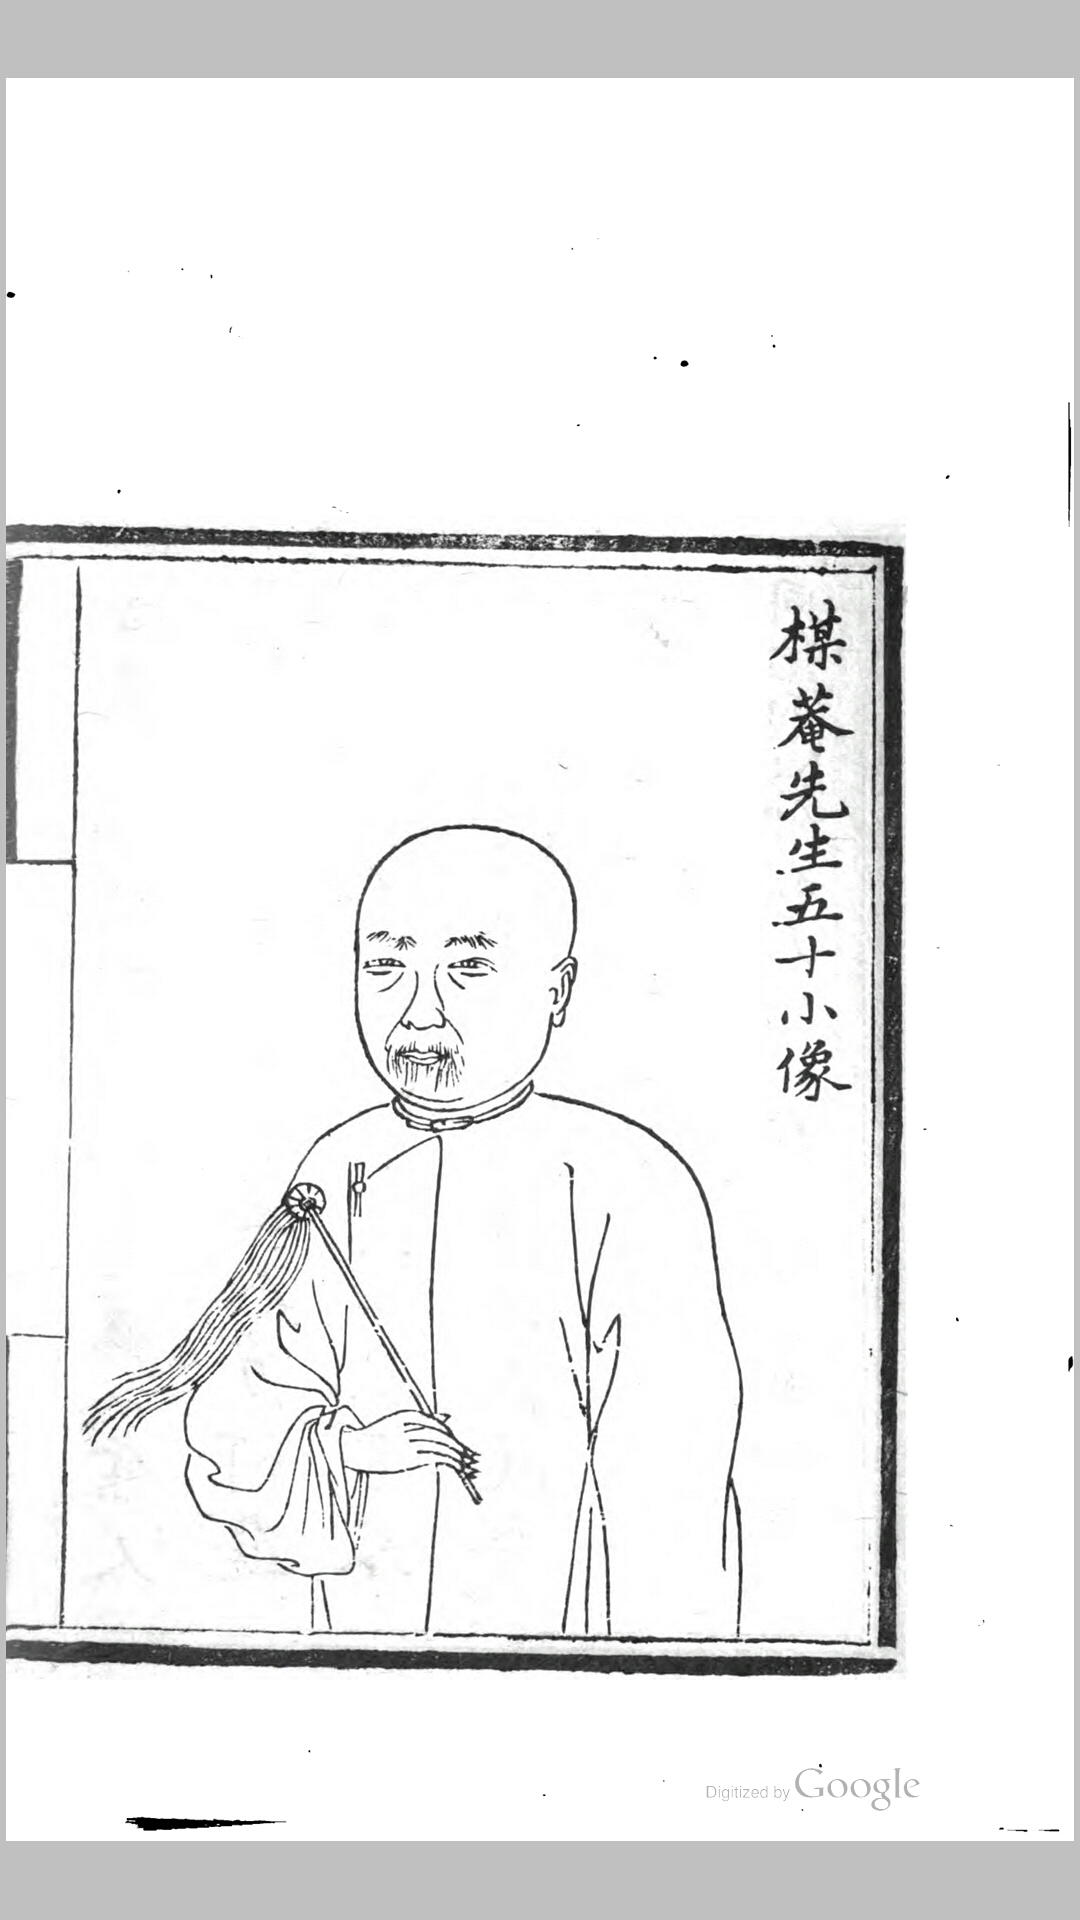 楳菴先生五十小像
Digitized by Google